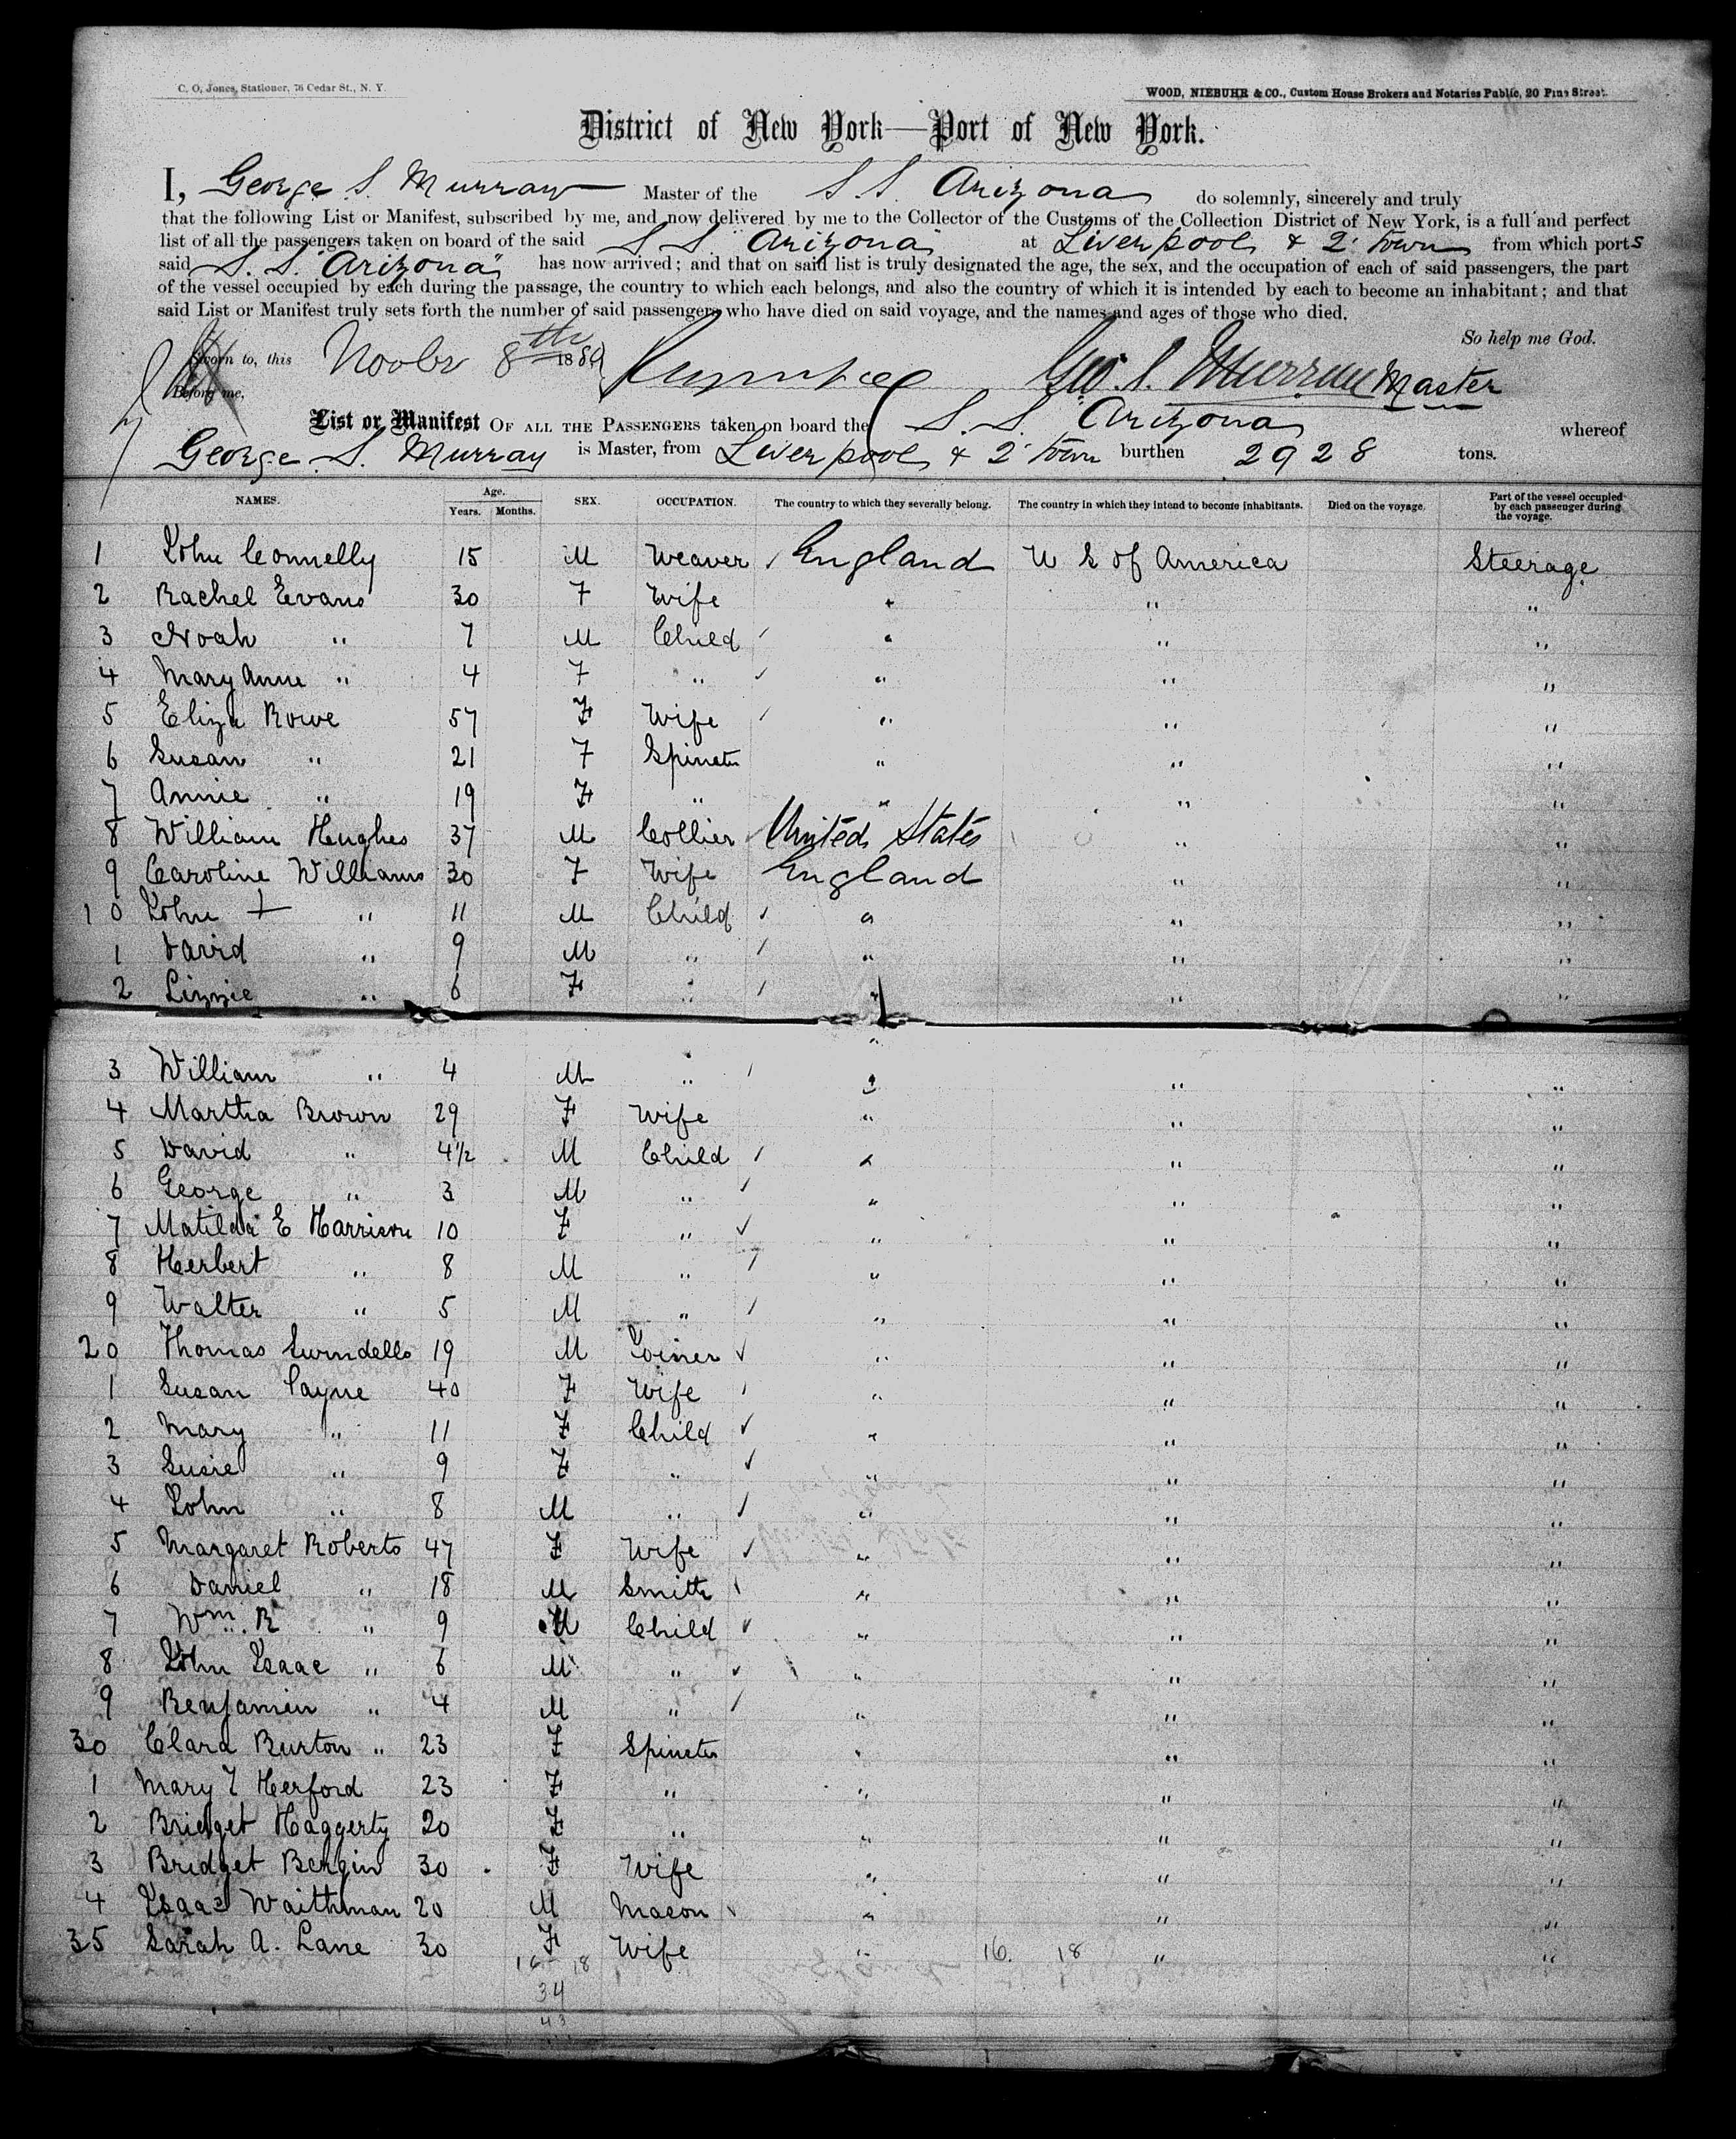 C. O. Jones, Stationer, 76 Cedar St., N. Y.
WOOD, NIEBUHR & CO., Custom House Brokers and Notaries Public, 20 Pine Street.
District of New York—Port of New York.
I, George S. Murray Master of the S S Arizona do solemnly, sincerely and truly
that the following List or Manifest, subscribed by me, and now delivered by me to the Collector of the Customs of the Collection District of New York, is a full and perfect
list of all the passengers taken on board of the said S S "Arizona" at Liverpool & 2' Town from which ports
said S. S. "Arizona" has now arrived; and that on said list is truly designated the age, the sex, and the occupation of each of said passengers, the part
of the vessel occupied by each during the passage, the country to which each belongs, and also the country of which it is intended by each to become an inhabitant; and that
said List or Manifest truly sets forth the number of said passengers who have died on said voyage, and the names and ages of those who died.
So help me God.
Sworn to, this Novbr 8th 1889 Geo. S. Murray Master
Before me,
List or Manifest OF ALL THE PASSENGERS taken on board the S. S. "Arizona whereof
George S. Murray is Master, from Liverpool & 2' Town burthen 2928 tons.
NAMES. Age. Years. Months. SEX. OCCUPATION. The country to which they severally belong. The country in which they intend to become inhabitants. Died on the voyage. Part of the vessel occupied by each passenger during the voyage.
1 John Connelly 15 M Weaver England U S of America Steerage
2 Rachel Evans 30 F Wife " " "
3 Noah " 7 M Child " " "
4 Mary Anne " 4 F " " " "
5 Eliza Rowe 57 F Wife " " "
6 Susan " 21 F Spinster " " "
7 Annie " 19 F " " " "
8 William Hughes 37 M Collier United States " "
9 Caroline Williams 30 F Wife England " "
10 John " 11 M Child " " "
1 David " 9 M " " " "
2 Lizzie " 6 F " " " "
3 William " 4 M " " " "
4 Martha Brown 29 F Wife " " "
5 David " 4½ M Child " " "
6 George " 3 M " " " "
7 Matilda E Harrison 10 F " " " "
8 Herbert " 8 M " " " "
9 Walter " 5 M " " " "
20 Thomas Swindells 19 M Joiner " " "
1 Susan Payne 40 F Wife " " "
2 Mary " 11 F Child " " "
3 Susie " 9 F " " " "
4 John " 8 M " " " "
5 Margaret Roberts 47 F Wife " " "
6 Daniel " 18 M Smith " " "
7 Wm. R " 9 M Child " " "
8 John Isaac " 6 M " " " "
9 Benjamin " 4 M " " " "
30 Clara Burton " 23 F Spinster " " "
1 Mary T Herford 23 F " " " "
2 Bridget Haggerty 20 F " " " "
3 Bridget Bergin 30 F Wife " " "
4 Isaac Waithman 20 M Mason " " "
35 Sarah A. Lane 30 F Wife " 16. 18 " "
16 18
34
43